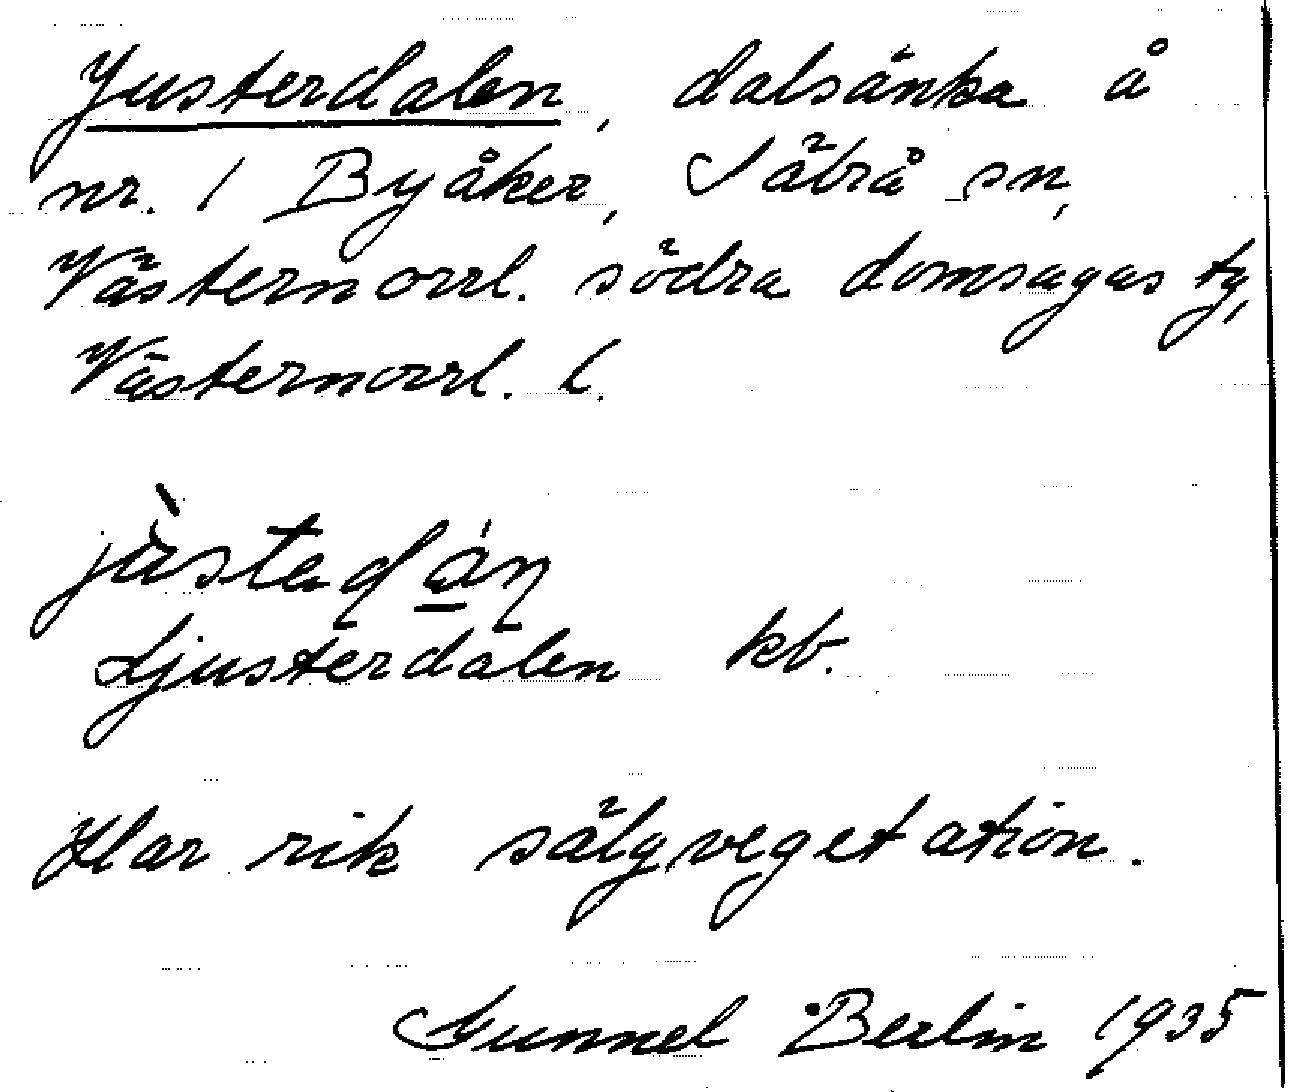 Justerdalen, dalsänka å
nr. 1 Byåker, Säbrå sn,
Västernorrl. södra domsagas tg,
Västernorrl. l.
Ljusterdalen kb.
Har rik sälgvegetation.
Gunnel Berlin 1935